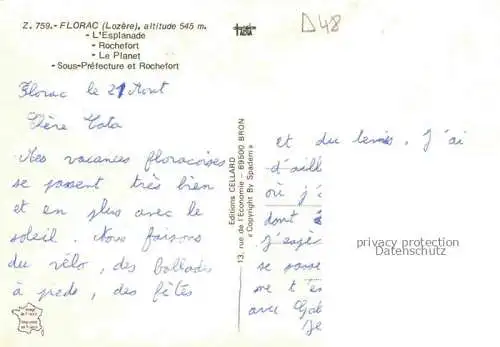 Z. 759.- FLORAC (Lozère), altitude 545 m.
- L'Esplanade
- Rochefort
- Le Planet
- Sous-Préfecture et Rochefort
D48
Florac le 21 Aout
Chère Tata
Mes vacances floracoises
se passent très bien
et en plus avec le
soleil. Nous faisons
du vélo, des ballades
à pieds, des fêtes
Editions CELLARD
13, rue de l'Economie - 69500 BRON
« Copyright By Spadem »
et du tennis. J'ai
d'aill
où j'
dont
se passe
me t
avec
Je
privacy protection
Datenschutz